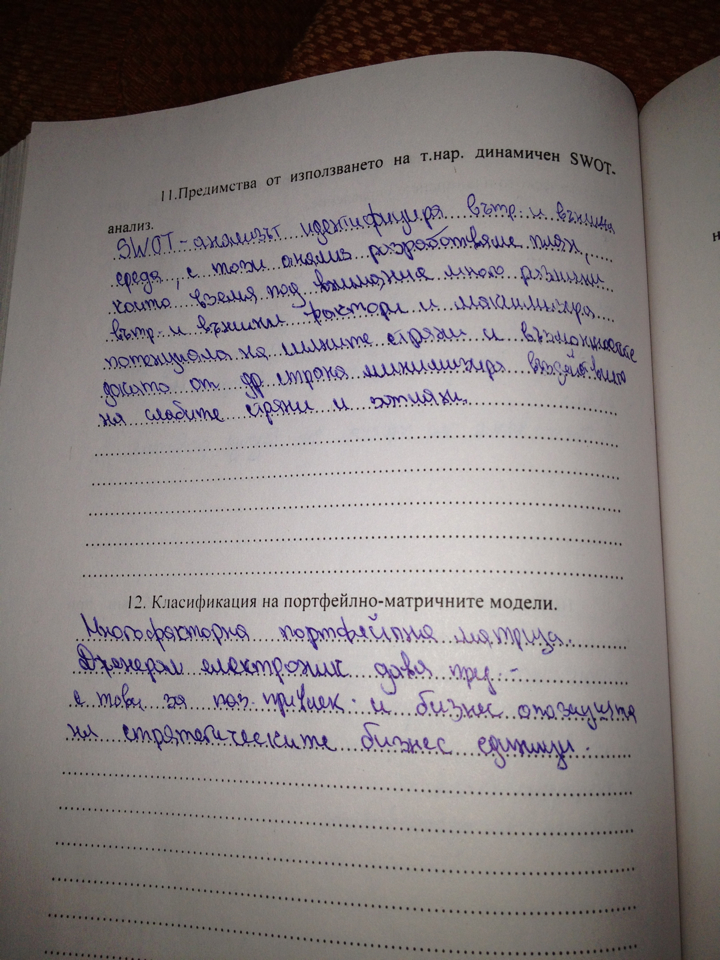 11.Предимства от използването на т.нар. динамичен SWOT-
анализ.
SWOT-анализът идентифицира вътр. и външна
среда, с този анализ разработваме план,
който взема под внимание много различни
вътр. и външни фактори и максимизира
потенциала на силните страни и възможностите
докато от др. страна минимизира въздействието
на слабите страни и заплахи.
12. Класификация на портфейлно-матричните модели.
Многофакторна портфейлна матрица.
Дженерал електроник дава пред.-
с това за паз. привлек. и бизнес
на стратегическите бизнес единици.
н